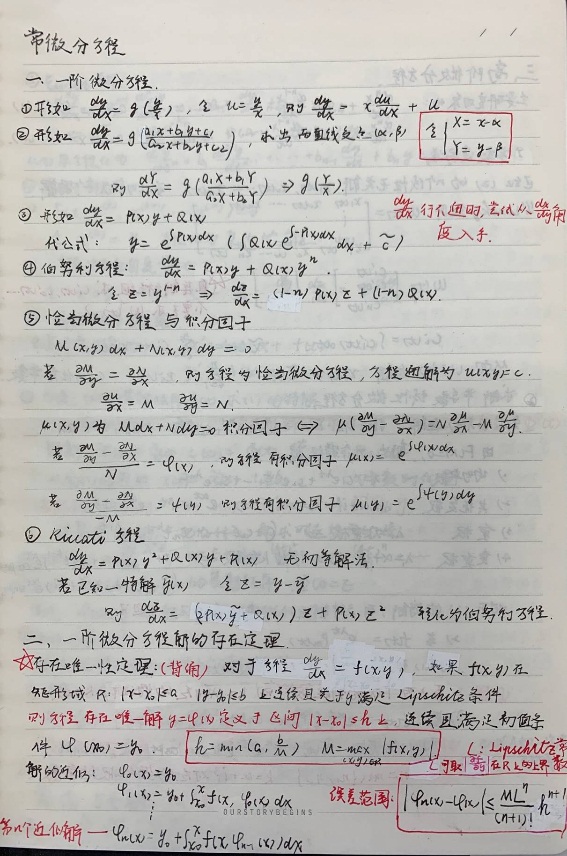 常微分方程
一、一阶微分方程.
① 形如 dy/dx = g(y/x), 令 u = y/x, 则 dy/dx = x du/dx + u
② 形如 dy/dx = g((a₁x+b₁y+c₁)/(a₂x+b₂y+c₂)), 求出两直线交点(α,β) 令 { X = x-α Y = y-β
则 dY/dX = g((a₁X+b₁Y)/(a₂X+b₂Y)) ⇒ g(Y/X).
③ 形如 dy/dx = P(x)y + Q(x)
dy/dx 行不通时,尝试从 dx/dy 角度入手.
代公式: y = e^{∫P(x)dx} (∫Q(x) e^{∫-P(x)dx} dx + c̃)
④ 伯努利方程: dy/dx = P(x)y + Q(x)yⁿ
令 z = y^{1-n} ⇒ dz/dx = (1-n)P(x)z + (1-n)Q(x).
⑤ 恰当微分方程与积分因子
M(x,y)dx + N(x,y)dy = 0
若 ∂M/∂y = ∂N/∂x, 则方程为恰当微分方程,方程通解为 u(x,y)=c.
∂u/∂x = M ∂u/∂y = N.
μ(x,y)为 Mdx+Ndy=0 积分因子 ⇔ μ(∂M/∂y - ∂N/∂x) = N ∂μ/∂x - M ∂μ/∂y.
若 (∂M/∂y - ∂N/∂x)/N = φ(x), 则方程有积分因子 μ(x) = e^{∫φ(x)dx}
若 (∂M/∂y - ∂N/∂x)/-M = ψ(y), 则方程有积分因子 μ(y) = e^{∫ψ(y)dy}
⑥ Riccati 方程
dy/dx = P(x)y² + Q(x)y + R(x) 无初等解法.
若已知一特解 ỹ(x) 令 z = y-ỹ
则 dz/dx = (2P(x)ỹ + Q(x))z + P(x)z² 转化为伯努利方程.
二、一阶微分方程解的存在定理.
☆存在唯一性定理:(背诵) 对于方程 dy/dx = f(x,y), 如果 f(x,y) 在
矩形域 R: |x-x₀|≤a |y-y₀|≤b 上连续且关于y满足 Lipschitz 条件
则方程存在唯一解 y=φ(x) 定义于区间 |x-x₀|≤h 上, 连续且满足初值条
件 φ(x₀)=y₀. h = min(a, b/M) M = max_{(x,y)∈R} |f(x,y)| L: Lipschitz 常数
可取 在R上的上界
解的近似: φ₀(x)=y₀
φ₁(x)=y₀+∫_{x₀}^{x} f(x, φ₀(x))dx
误差范围: |φₙ(x)-φ(x)| ≤ MLⁿ/(n+1)! h^{n+1}
⋮
OURSTORYBEGINS
第n个近似解 — φₙ(x)=y₀+∫_{x₀}^{x} f(x, φₙ₋₁(x))dx